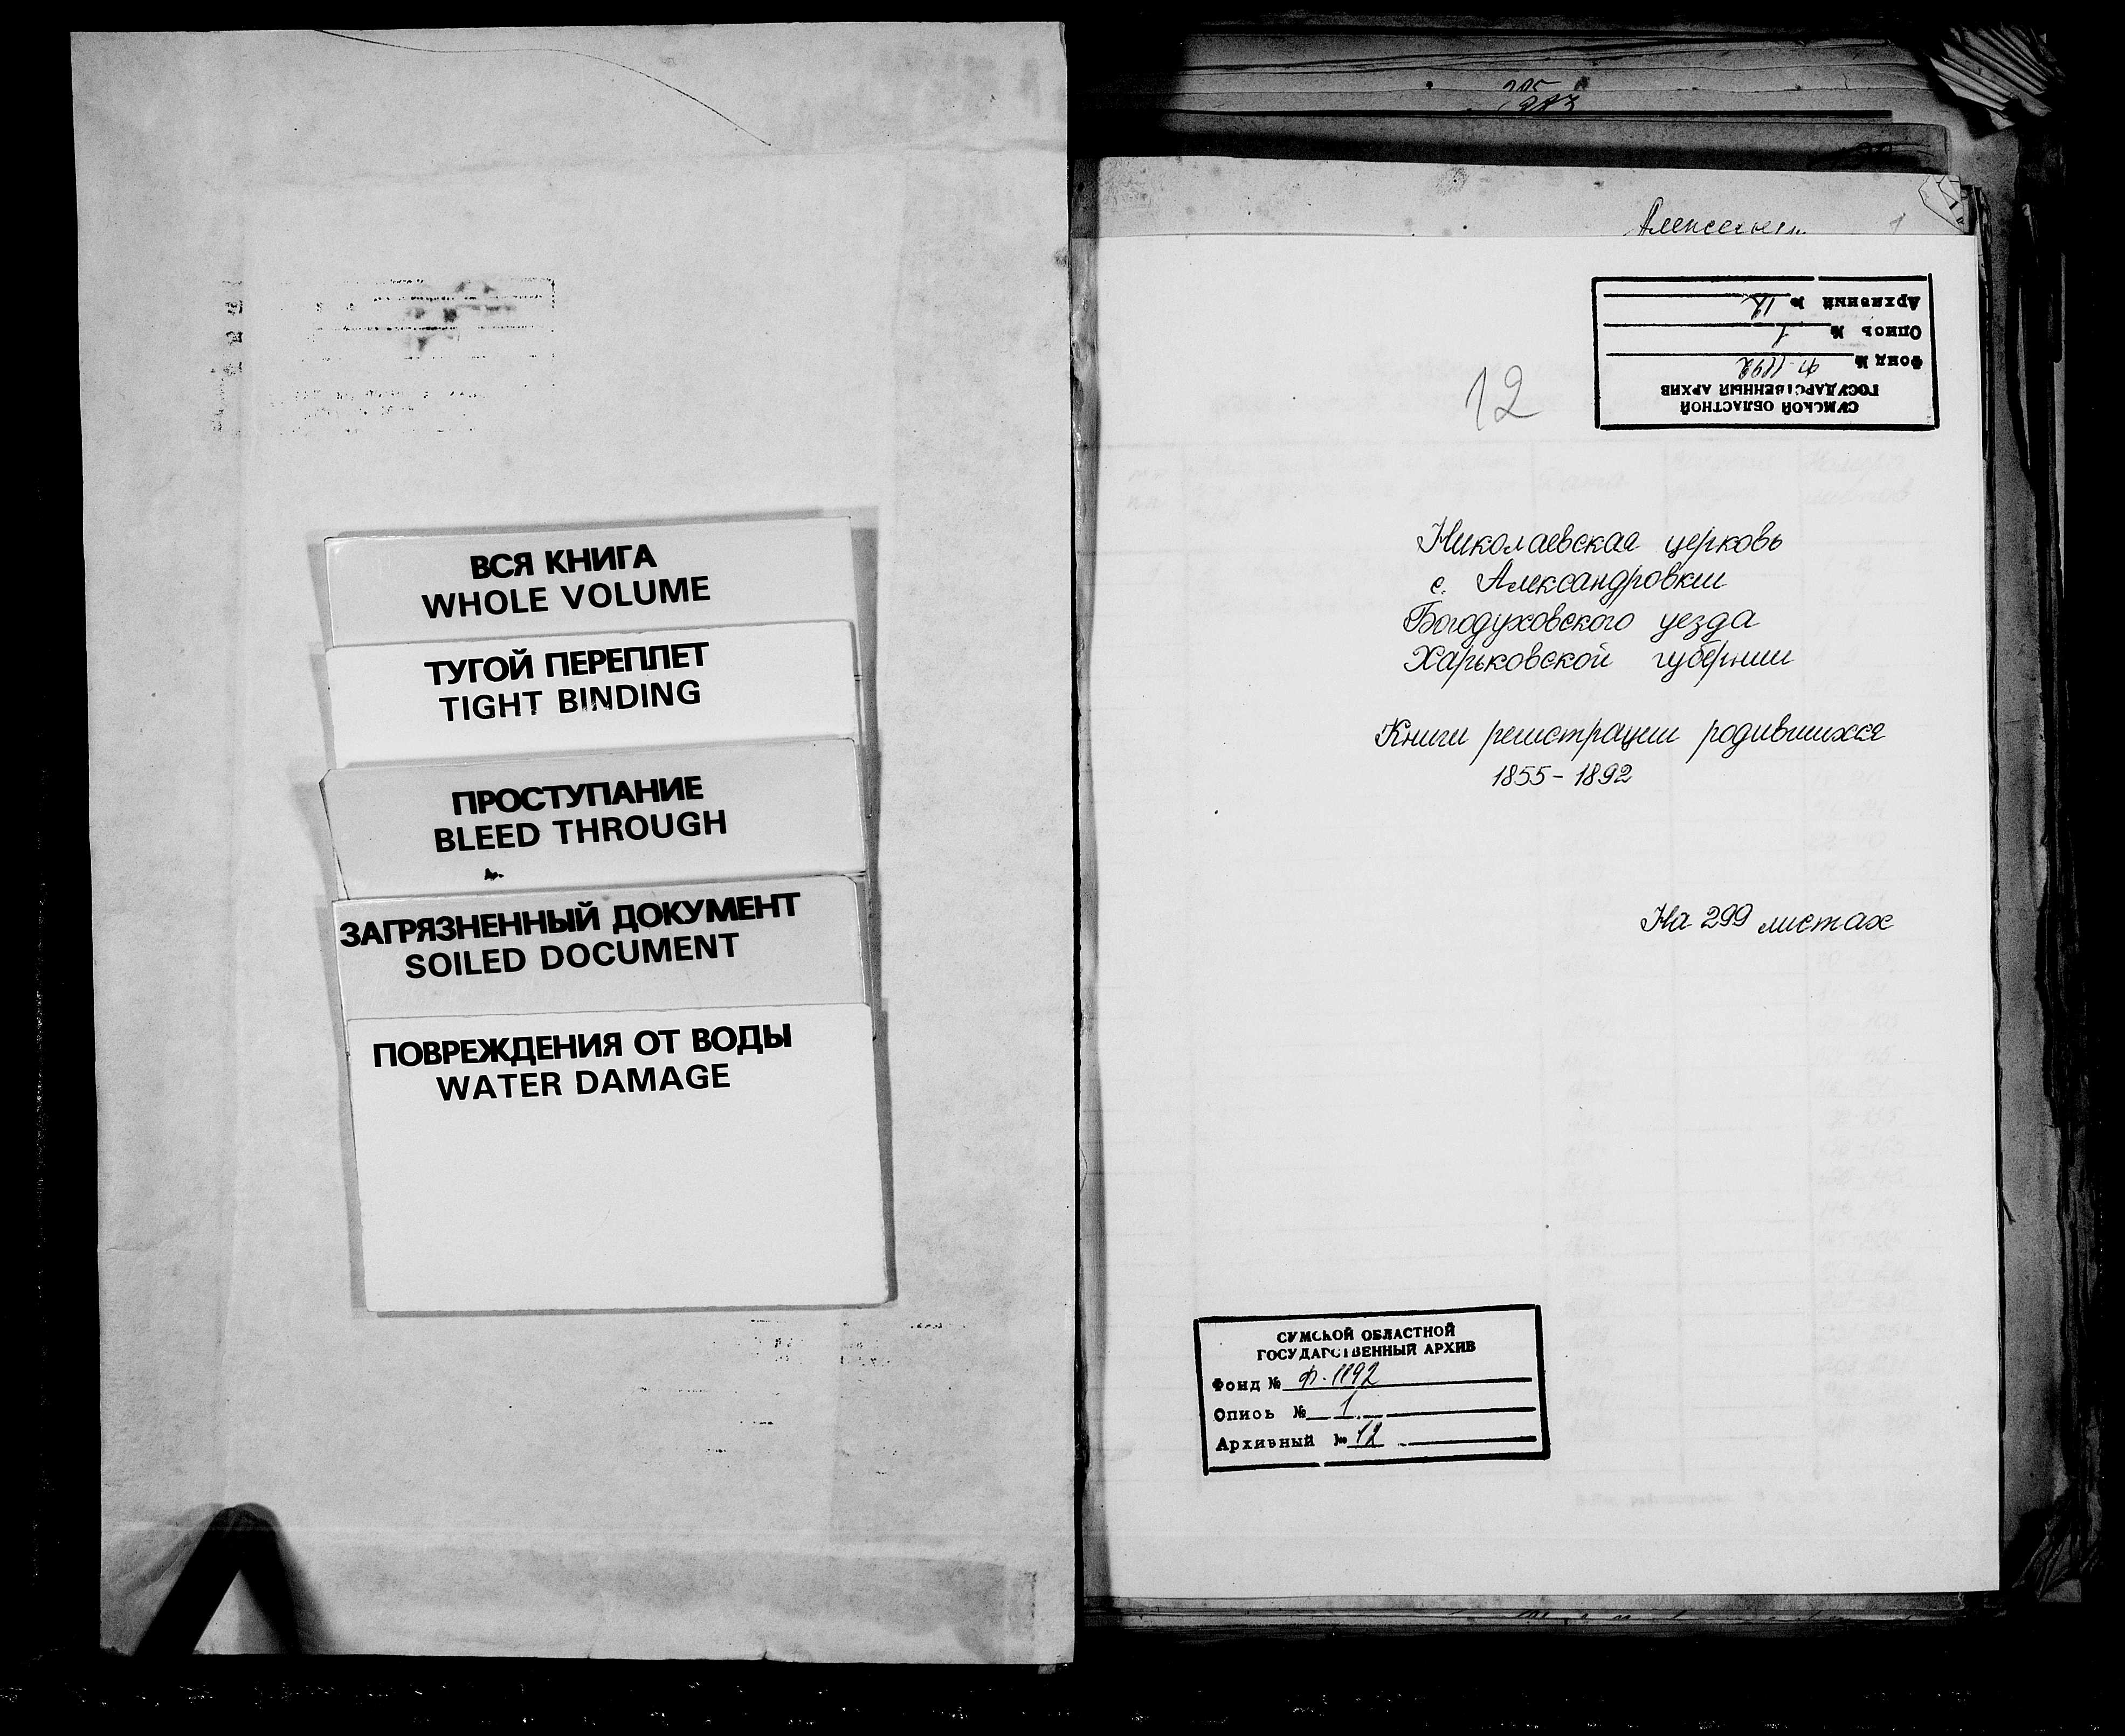 ВСЯ КНИГА
WHOLE VOLUME
ТУГОЙ ПЕРЕПЛЕТ
TIGHT BINDING
ПРОСТУПАНИЕ
BLEED THROUGH
ЗАГРЯЗНЕННЫЙ ДОКУМЕНТ
SOILED DOCUMENT
ПОВРЕЖДЕНИЯ ОТ ВОДЫ
WATER DAMAGE
СУМСКОЙ ОБЛАСТНОЙ
ГОСУДАРСТВЕННЫЙ АРХИВ
Фонд № Ф-1192
Опись № 1
Архивный № 12
12
Николаевская церковь
с. Александровки
Богодуховского уезда
Харьковской губернии
Книги регистрации родившихся
1855-1892
На 299 листах
СУМСКОЙ ОБЛАСТНОЙ
ГОСУДАРСТВЕННЫЙ АРХИВ
Фонд № Ф. 1192
Опись № 1
Архивный № 12